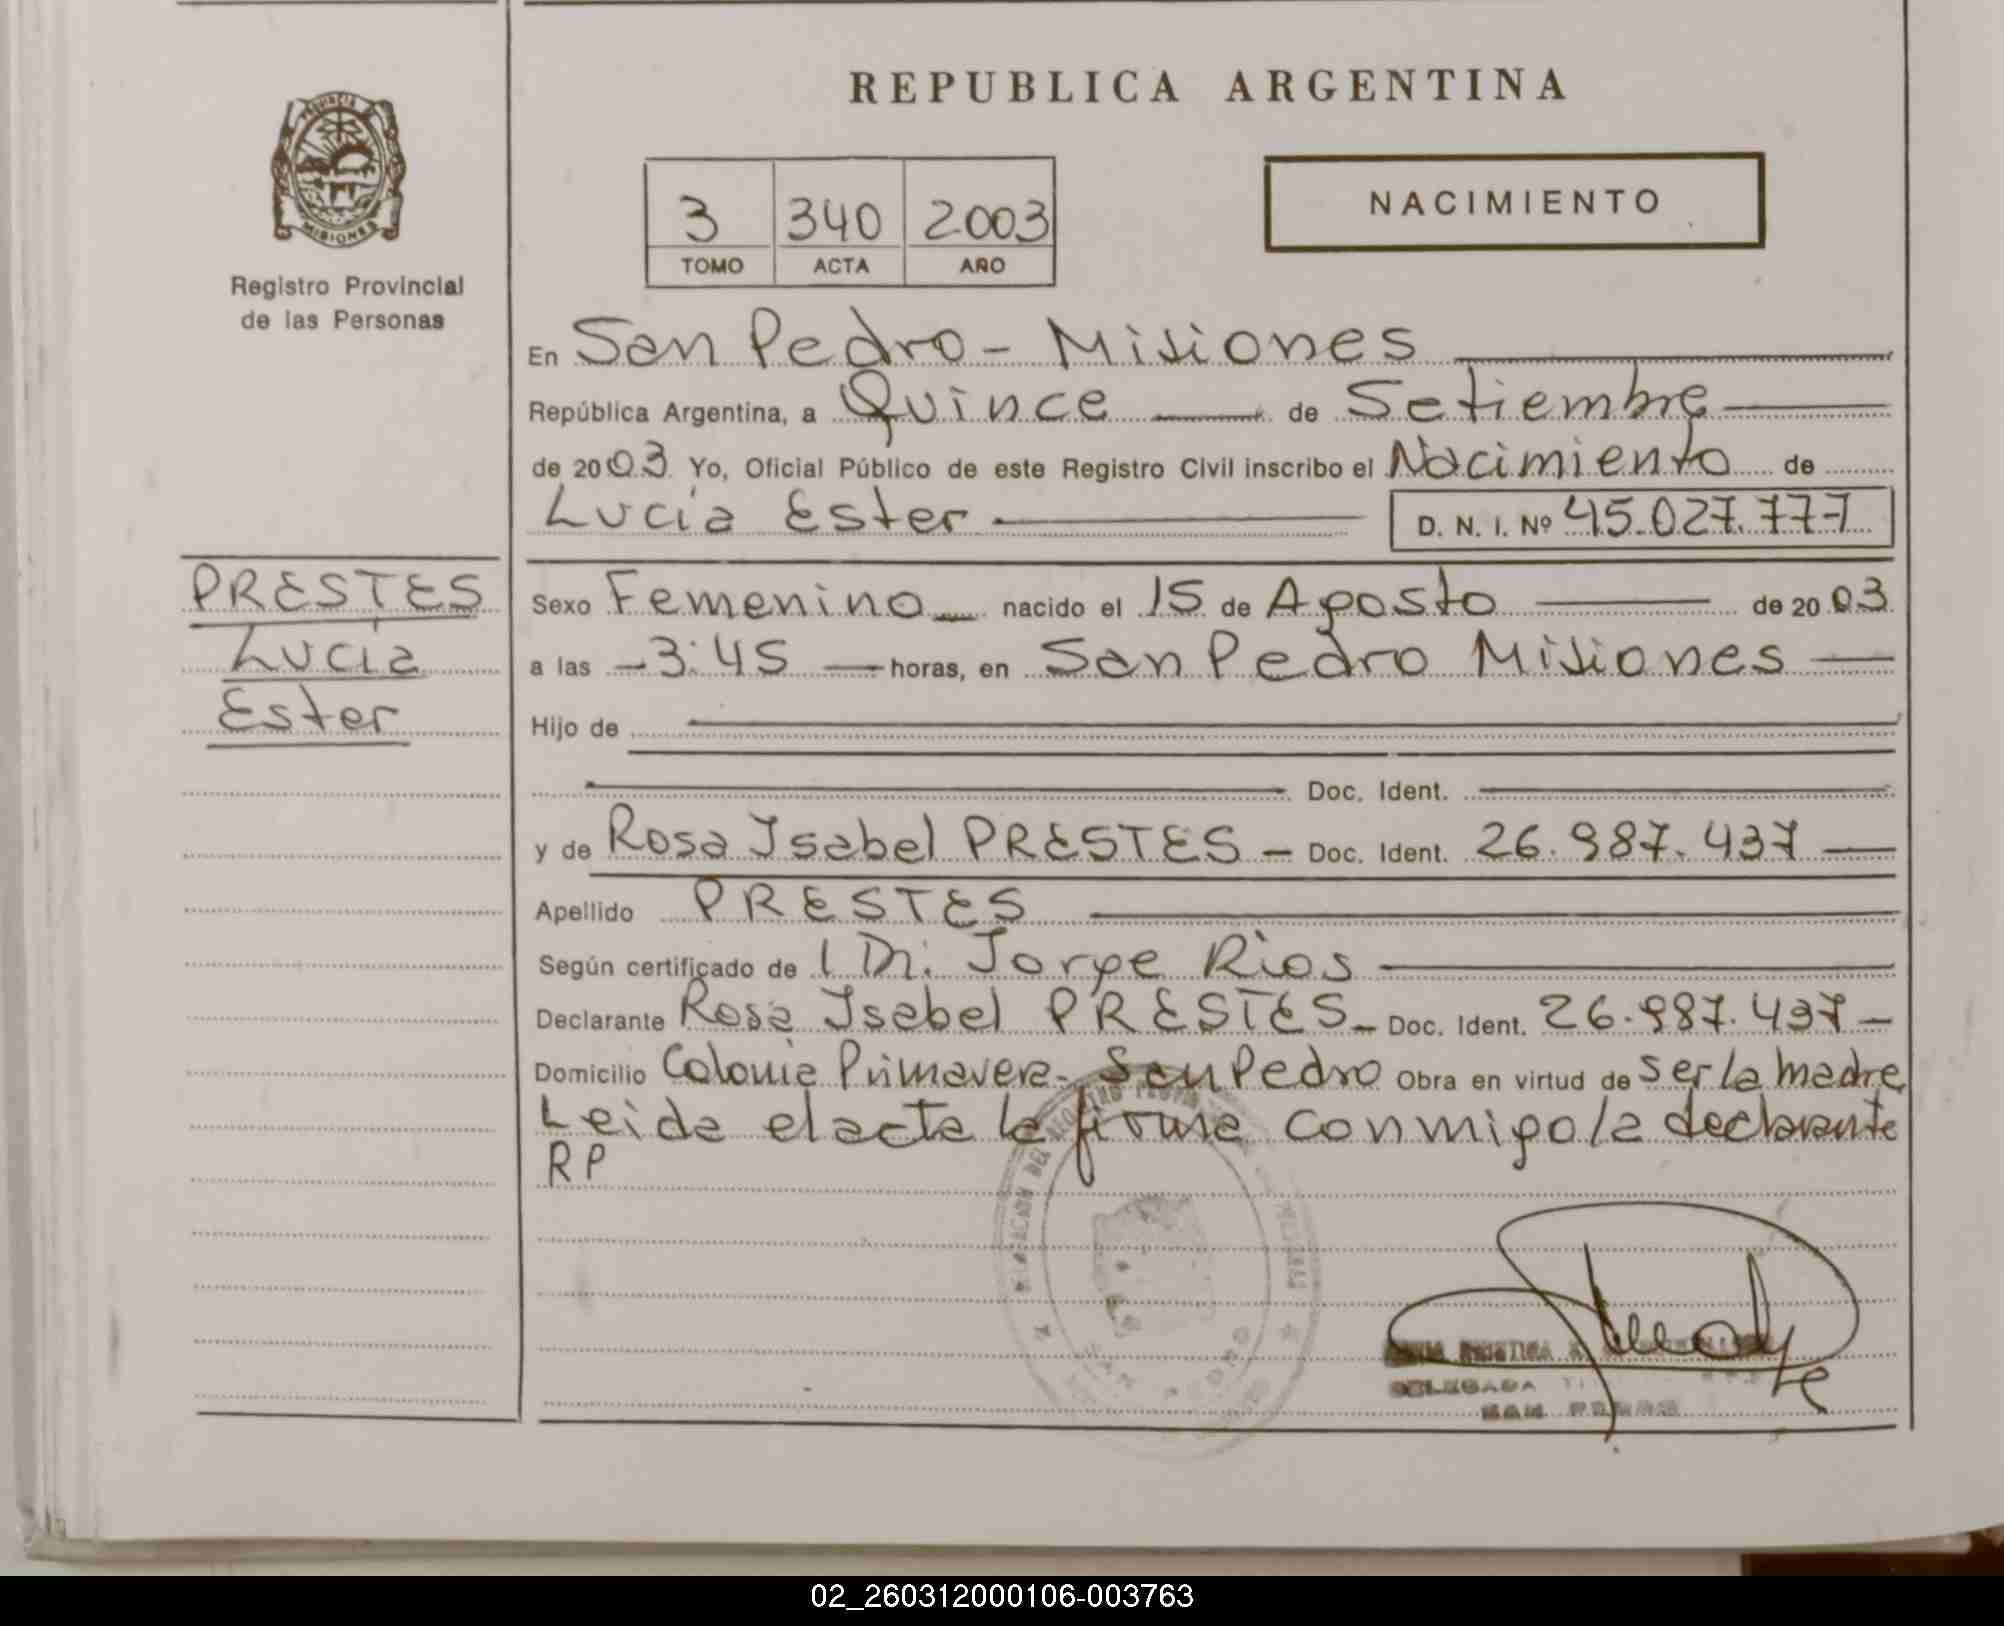 REPUBLICA ARGENTINA
PROVINCIA
MISIONES
Registro Provincial
de las Personas
3 340 2003
TOMO ACTA AÑO
NACIMIENTO
En San Pedro - Misiones
República Argentina, a Quince de Setiembre
de 2003 Yo, Oficial Público de este Registro Civil inscribo el Nacimiento de
Lucía Ester D. N. I. Nº 45.027.777
PRESTES
Lucía
Ester
Sexo Femenino nacido el 15 de Agosto de 2003
a las - 3:45 horas, en San Pedro Misiones
Hijo de
Doc. Ident.
y de Rosa Isabel PRESTES - Doc. Ident. 26.987.437
Apellido PRESTES
Según certificado de Jorge Rios
Declarante Rosa Isabel PRESTES - Doc. Ident. 26.987.437 -
Domicilio Colonia Primavera - San Pedro Obra en virtud de ser la madre
Leida el acta la firma conmigo la declarante
RP
DELEGADA
SAN PEDRO
02_260312000106-003763